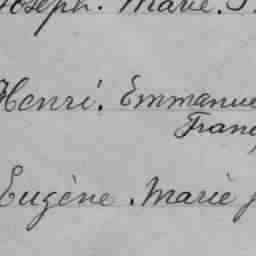 Joseph. Marie.
Henri. Emmanue
Franç
Eugène. Marie